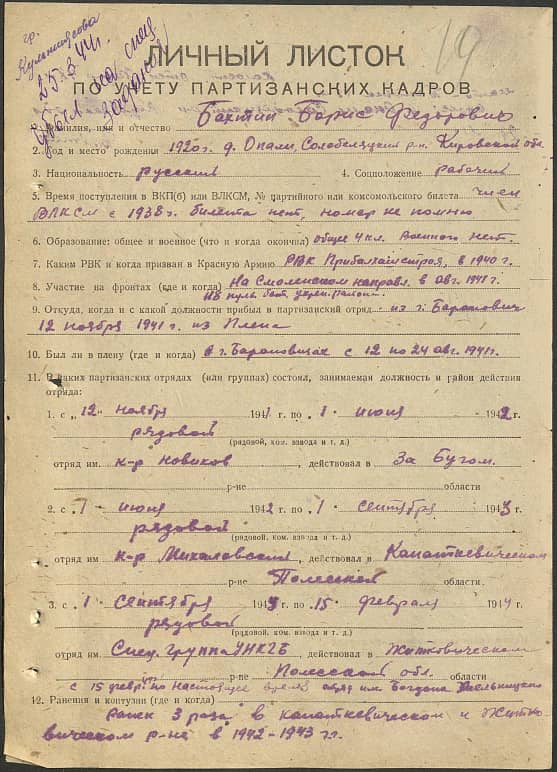 гр. Кульчиясова
25.3.44 г.
убыл на спец
задание
19
ЛИЧНЫЙ ЛИСТОК
ПО УЧЕТУ ПАРТИЗАНСКИХ КАДРОВ
1. Фамилия, имя и отчество Бахтин Борис Федорович
2. Год и место рождения 1920 г. д. Опали, Солобеляцкий р-н, Кировской обл.
3. Национальность русский 4. Соцположение рабочий
5. Время поступления в ВКП(б) или ВЛКСМ, № партийного или комсомольского билета член
ВЛКСМ с 1938 г. билета нет, номер не помню
6. Образование: общее и военное (что и когда окончил) общее 4 кл. Военного нет.
7. Каким РВК и когда призван в Красную Армию РВК Прибалхашстроя, в 1940 г.
8. Участие на фронтах (где и когда) На Смоленском направл. в авг. 1941 г.
пуль бат. укреп. район.
9. Откуда, когда и с какой должности прибыл в партизанский отряд из г. Баранович
12 ноября 1941 г. из Плена
10. Был ли в плену (где и когда) в г. Барановичах с 12 по 24 авг. 1941 г.
11. В каких партизанских отрядах (или группах) состоял, занимаемая должность и район действия
отряда:
1. с „12 ноября 1941 г. по 1 июня 1942 г.
рядовой
(рядовой, ком. взвода и т. д.)
отряд им. к-р Новиков, действовал в За Бугом.
р-не области
2. с 1 июня 1942 г. по 1 сентября 1943 г.
рядовой
(рядовой, ком. взвода и т. д.)
отряд им. к-р Михаловский, действовал в Копаткевическом
р-не Полесской области.
3. с 1 сентября 1943 г. по 15 февраля 1944 г.
рядовой
(рядовой, ком. взвода и т. д.)
отряд им. Спец. группа УНКГБ, действовал в Житковическом
р-не Полесской обл. области
с 15 февр. по настоящее время отр. им. Богдана Хмельницкого
12. Ранения и контузии (где и когда)
Ранен 3 раза в копаткевическом и Житко
вическом р-не в 1942-1943 гг.